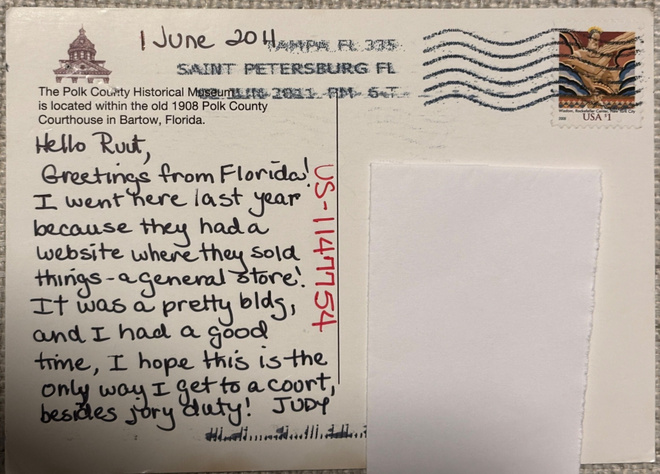 1 June 2011
TAMPA FL 335
SAINT PETERSBURG FL
JUN 2011 PM 6 T
The Polk County Historical Museum
is located within the old 1908 Polk County
Courthouse in Bartow, Florida.
Hello Ruut,
Greetings from Florida!
I went here last year
because they had a
website where they sold
things - a general store!
It was a pretty bldg,
and I had a good
time, I hope this is the
only way I get to a court,
besides jory duty! JUDY
US-1147754
Wisdom, Rockefeller Center, New York City
USA $1